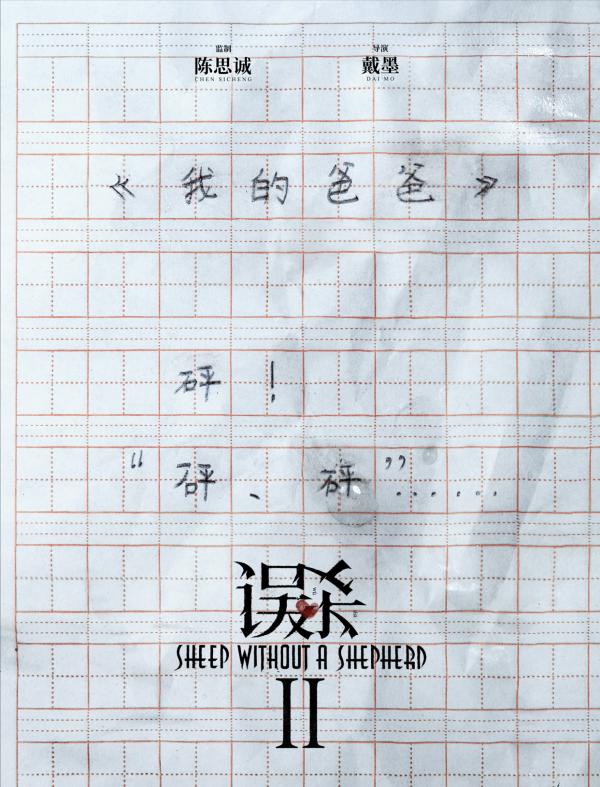 监制 导演
陈思诚 戴墨
CHEN SICHENG DAI MO
《我的爸爸》
砰！
“砰、砰”……
误杀
SHEEP WITHOUT A SHEPHERD
II